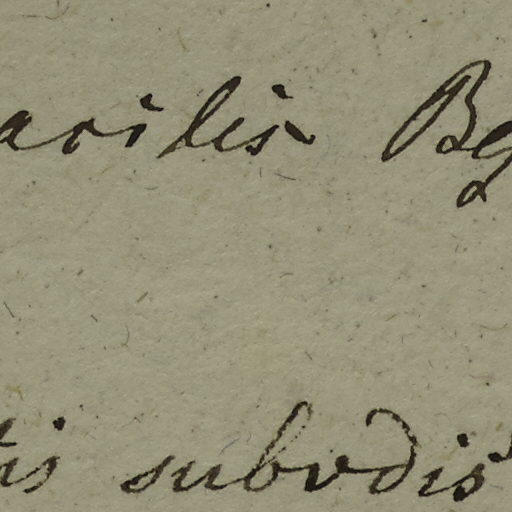 arilis Bg
is subvdis